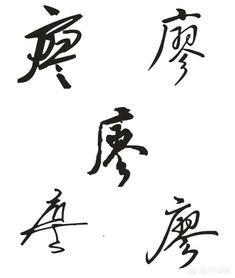 廖 廖
廖
廖 廖